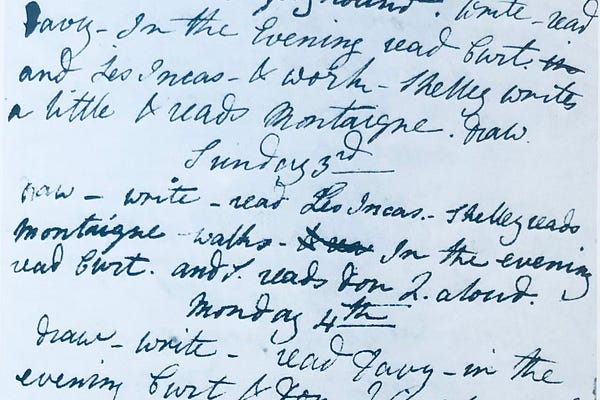 ground. Write - read
Davy - In the Evening read Curt. in
and Les Incas - & work - Shelley writes
a little & reads Montaigne. draw.
Sunday 3rd
draw - write - read Les Incas. - Shelley reads
Montaigne - walks - In the evening
read Curt. and S. reads Don Q. aloud.
Monday 4th
draw - write - read Davy - in the
evening Curt & Don